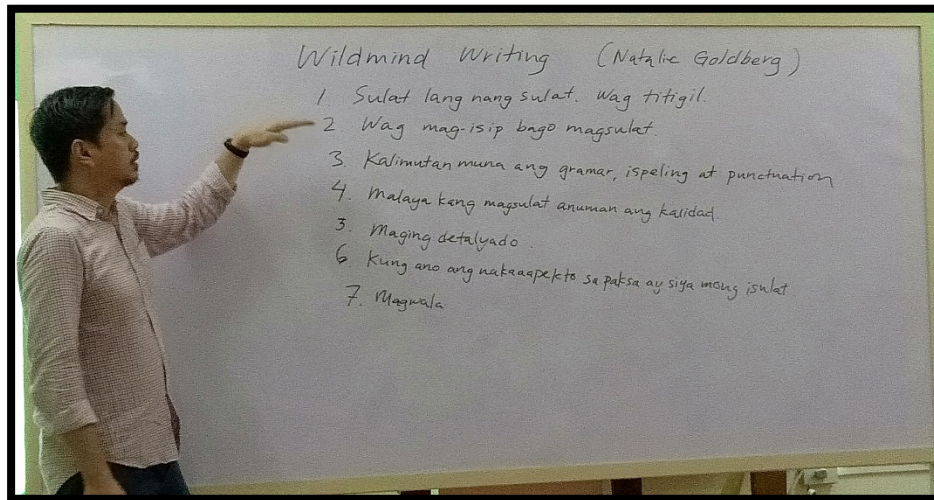 Wildmind Writing (Natalie Goldberg)
1 Sulat lang nang sulat. Wag titigil.
2 Wag mag-isip bago magsulat.
3. Kalimutan muna ang gramar, ispeling at punctuation
4. Malaya kang magsulat anuman ang kalidad.
5. Maging detalyado.
6. Kung ano ang nakaaapekto sa paksa ay siya mong isulat
7. Magwala